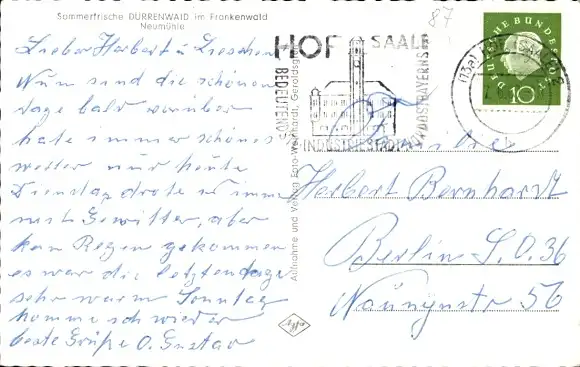 Sommerfrische DÜRRENWAID im Frankenwald
Neumühle
Lieber Herbert u Lieschen
Nun sind die schönen
tage bald vorüber
hate immer schönes
wetter nur heute
Dienstag drote es imme
mit Gewitter, aber
kein Regen gekommen
es war die letzten tage
sehr warm Sonntag
komme ich wieder
beste Grüße O. Gustav
Aufnahme und Verlag Foto-Weinhardt, Geroldsgrün
87
HOF SAALE
BEDEUTENDE
INDUSTRIESTADT
NORDOSTBAYERNS
(13a) HOF
DEUTSCHE BUNDESPOST
10
Familie
Herbert Bernhardt
Berlin S.O. 36
Naunynstr 56
Agfa